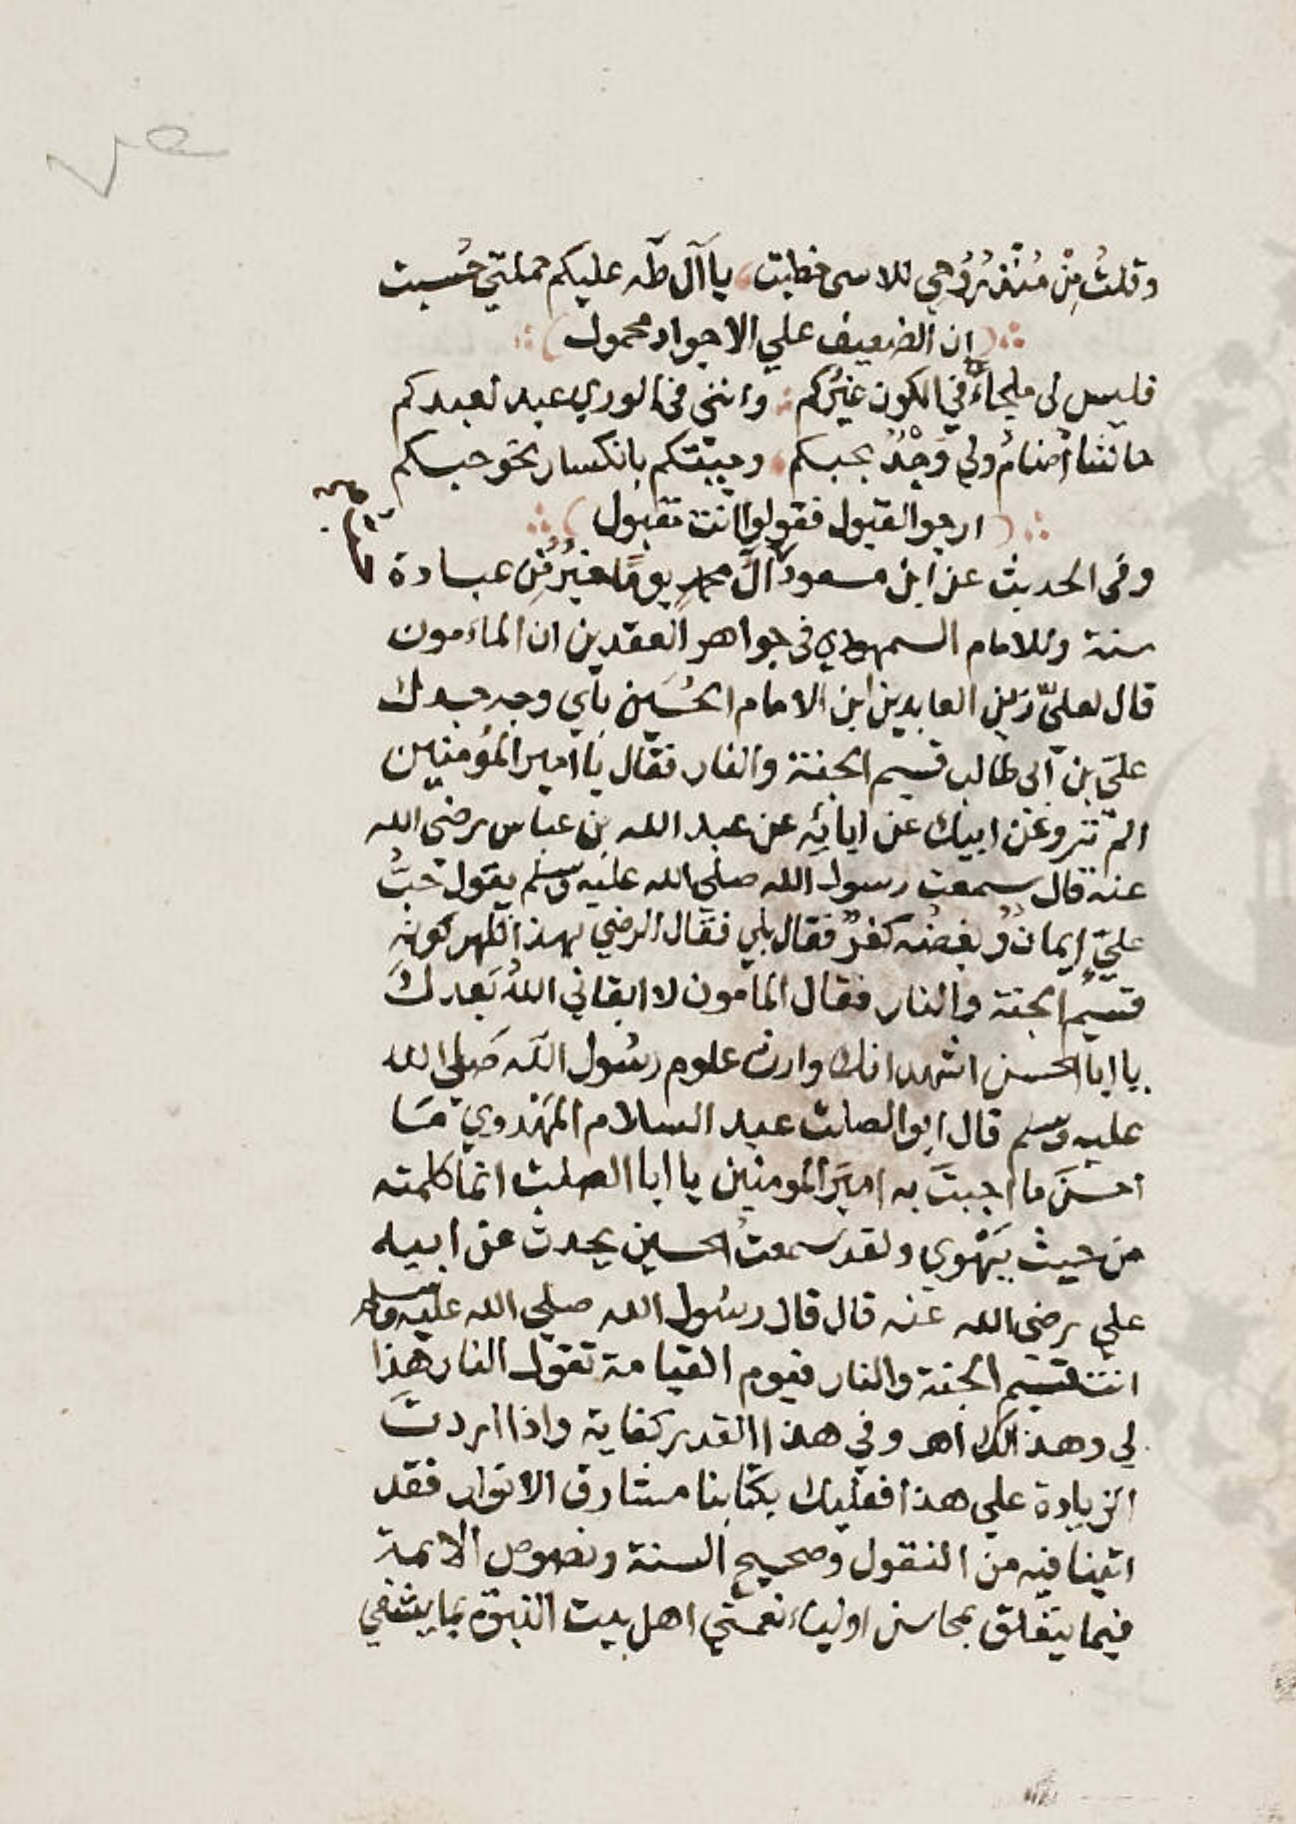 وقلتُ مِنْ مُنْذُ رُوحي للاسى خطبت يا آل طه عليكم حملتي حُسبت
ان الضعيف علي الاجواد محمول
فليس لى ملجاءٌ في الكون غيرُكم وانني فى الوري عبد لعبدكم
حاشا أضام ولي وَجْدٌ بحبكم وجيتكم بانكسار نحو حبكم
ارجو القبول فقولوا انت مقبول
وفى الحديث عن ابن مسعود آلُ محمدٍ يومًا خيرٌ مِن عبادة
سنة وللامام السمهودي فى جواهر العقدين ان الماءمون
قال لعليّ زين العابدين ابن الامام الحُسَين باي وجه جدك
علي بن ابى طالب قسيم الجنة والنار فقال يا امير المؤمنين
الم ترو عن ابيك عن ابائه عن عبد الله بن عباس رضى الله
عنه قال سمعت رسول الله صلى الله عليه وسلم يقول حبُّ
عليّ إيمانٌ وبغضُه كفرٌ فقال بلي فقال الرضي بهذا ظهر كونه
قسيمُ الجنة والنار فقال المأمون لا ابقاني اللهُ بَعدكَ
يا ابا الحسن اشهد انك وارث علوم رسُول الله صَلى الله
عليه وسلم قال ابو الصلت عبد السلام الهَروي مَا
احسنَ ما اجبتَ به اميرَ المومنين يا ابا الصلت انما كلمته
من حيث يَهْوي ولقد سمعتُ الحسين يحدث عن ابيه
علي رضى الله عنه قال قال رسُول الله صلى الله عليه وسلم
انت قسيم الجنة والنار فيوم القيامة تقول النار هذا
لي وهذا لك اهـ وفي هذا القدر كفاية واذا اردتَ
الزيادة علي هذا فعليك بكتابنا مشارق الانوار فقد
اتينا فيه من النقول وصحيح السنة ونصوص الائمة
فيما يتعلق بمحاسن اولياء نعمتي اهل بيت النبوة بما يشفي